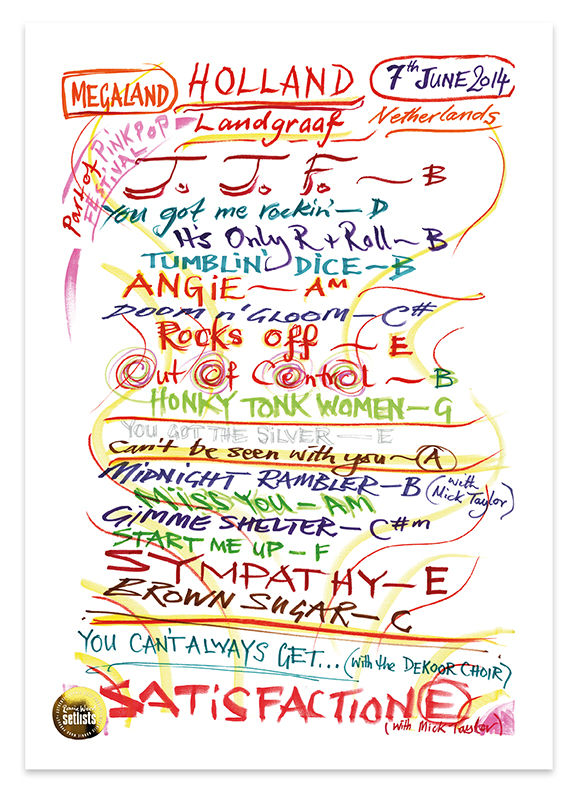 MEGALAND HOLLAND 7th JUNE 2014
Landgraaf Netherlands
Part of PiNKPOP FESTIVAL
J. J. F. ~ B
You got me rockin' — D
It's Only R + Roll ~ B
TUMBLIN' DICE ~ B
ANGiE ~ AM
DOOM n' GLOOM — C#
Rocks off ~ E
Out Of CONTROL ~ B
HONKY TONK WOMEN — G
YOU GOT THE SiLVER — E
Can't be seen with you ~ A
MIDNIGHT RAMBLER — B (with Mick Taylor)
MiSS YOU — AM
GIMME SHELTER — C#m
START ME UP — F
SYMPATHY — E
BROWN SUGAR — C
YOU CAN'T ALWAYS GET... (with the DEKOOR CHOIR)
SATiSFACTION E
(with Mick Taylor)
Ronnie Wood
setlists